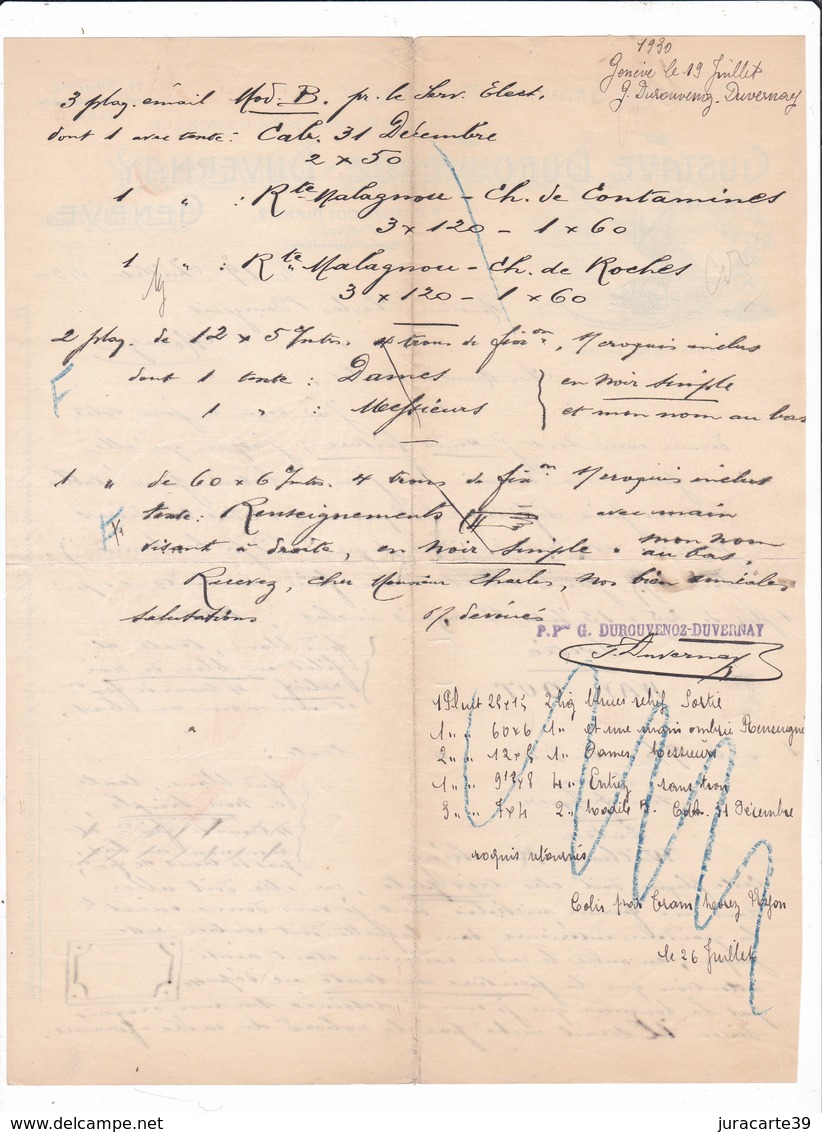 1930
Genève le 19 Juillet
G. Durouvenoz-Duvernay
3 plaq. émail Mod: B. pr. le Serv. Elect.
dont 1 avec texte: Cab. 31 Décembre
2 x 50
1 " : Rte Malagnou - Ch. de Contamines
3 x 120 - 1 x 60
1 " : Rte Malagnou - Ch. de Roches
3 x 120 - 1 x 60
2 plaq. de 12 x 5 c/mtrs. 4 trous de fixon, croquis inclus
dont 1 texte : Dames } en noir simple
1 " : Messieurs } et mon nom au bas
1 " de 60 x 6 c/mtrs. 4 trous de fixon croquis inclus
texte: Renseignements avec main
visant à droite, en noir simple. mon nom
au bas,
Recevez, cher Monsieur Charles, nos bien amicales
salutations dévoués
P. Pon G. DUROUVENOZ-DUVERNAY
J. Duvernay
1 Pl 25 x 15 2 lig blanes relief Sortie
1 " " 60x6 1 " et une main ombrée Renseigne
2 " " 12x5 1 " Dames, Messieurs
1 " " 4 " Entrez sans
3 " " 7x4 2 " modèle B. Cab. 31 Décembre
croquis retournés
Colis par Tram Morez Nyon
le 26 Juillet
F
F
juracarte39